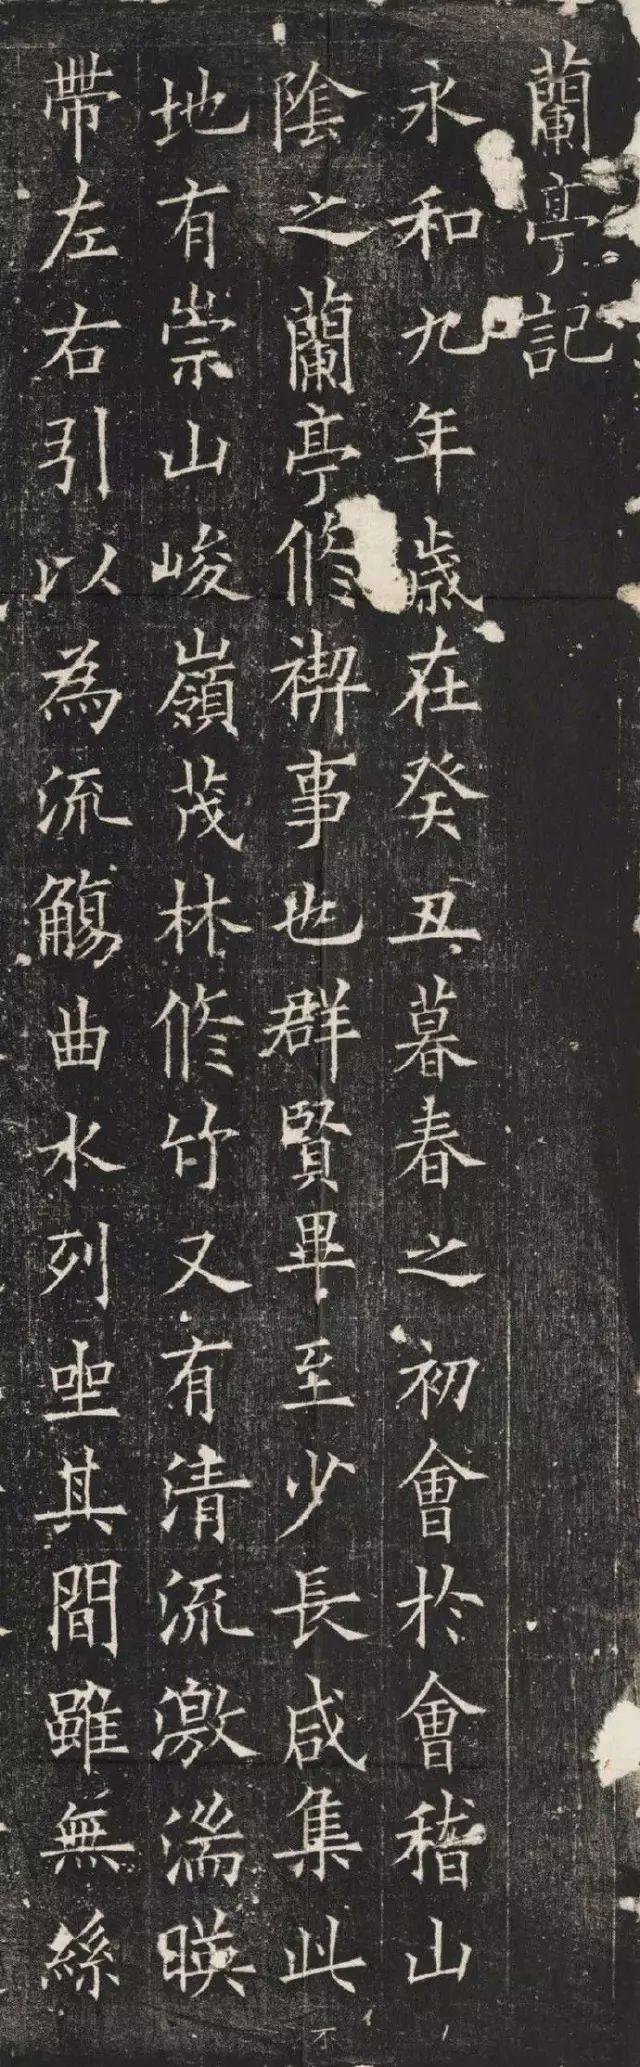 蘭亭記
永和九年歲在癸丑暮春之初會於會稽山
陰之蘭亭修禊事也群賢畢至少長咸集此
地有崇山峻嶺茂林修竹又有清流激湍暎
帶左右引以為流觴曲水列坐其間雖無絲